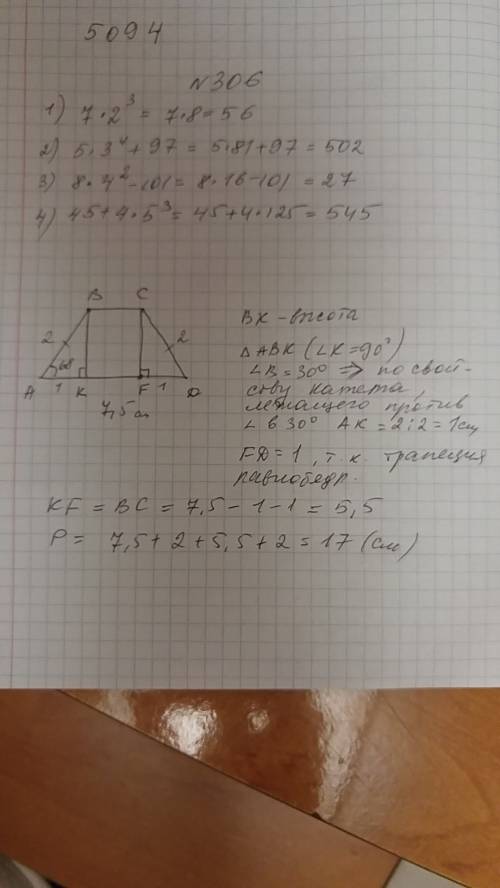 5094
N306
1) 7·2³ = 7·8 = 56
2) 5·3⁴ + 97 = 5·81 + 97 = 502
3) 8·4² - 101 = 8·16 - 101 = 27
4) 45 + 4·5³ = 45 + 4·125 = 545
B C
2 2
60°
A 1 K F 1 D
7,5 см
BK - высота
△ABK (∠K = 90°)
∠B = 30° ⇒ по свой-
ству катета,
лежащего против
∠ в 30° AK = 2:2 = 1 см
FD = 1, т.к. трапеция
равнобедр.
KF = BC = 7,5 - 1 - 1 = 5,5
P = 7,5 + 2 + 5,5 + 2 = 17 (см)